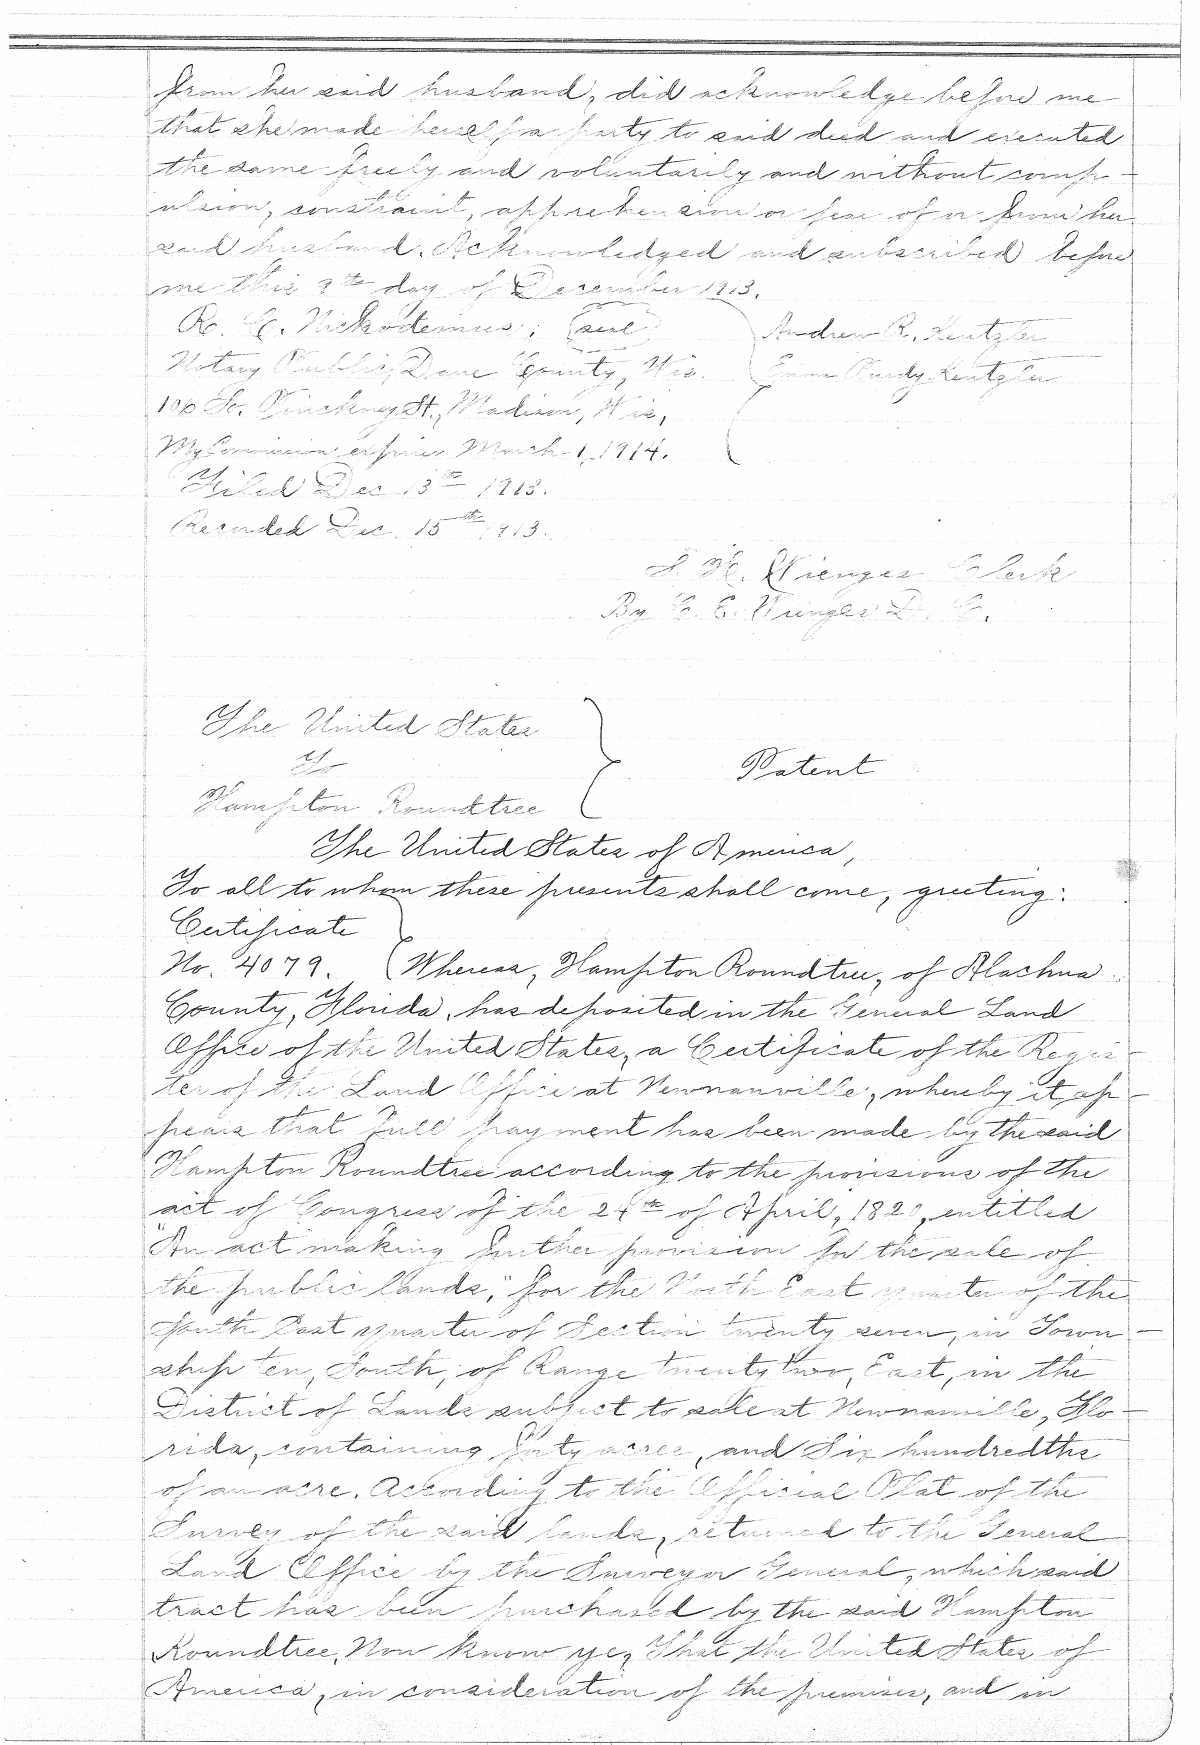 from her said husband, did acknowledge before me
that she made herself a party to said deed and executed
the same freely and voluntarily and without comp-
ulsion, constraint, apprehension or fear of or from her
said husband. Acknowledged and subscribed before
me this 9th day of December 1913.
R. C. Nickodemus; (seal) Andrew R. Kentzler
Notary Public, Dane County, Wis. Emma Purdy Kentzler
106 So. Pinckney St., Madison, Wis,
My Commission expires March 1, 1914.
Filed Dec 13th 1913.
Recorded Dec. 15th 1913.
S. H. Wienges Clerk
By C. E. Wienges D. C.
The United States
To
Patent
Hampton Roundtree
The United States of America,
To all to whom these presents shall come, greeting:
Certificate
No. 4079. Whereas, Hampton Roundtree, of Alachua
County, Florida, has deposited in the General Land
Office of the United States, a Certificate of the Regis-
ter of the Land Office at Newnanville, whereby it ap-
pears that full payment has been made by the said
Hampton Roundtree according to the provisions of the
act of Congress of the 24th of April, 1820, entitled
"An act making further provision for the sale of
the public lands," for the North East quarter of the
South East quarter of Section twenty seven, in Town-
ship ten, South, of Range twenty two, East, in the
District of Lands subject to sale at Newnanville, Flo-
rida, containing forty acres, and Six hundredths
of an acre. According to the Official Plat of the
Survey of the said lands, returned to the General
Land Office by the Surveyor General, which said
tract has been purchased by the said Hampton
Roundtree, Now know ye, That the United States of
America, in consideration of the premises, and in